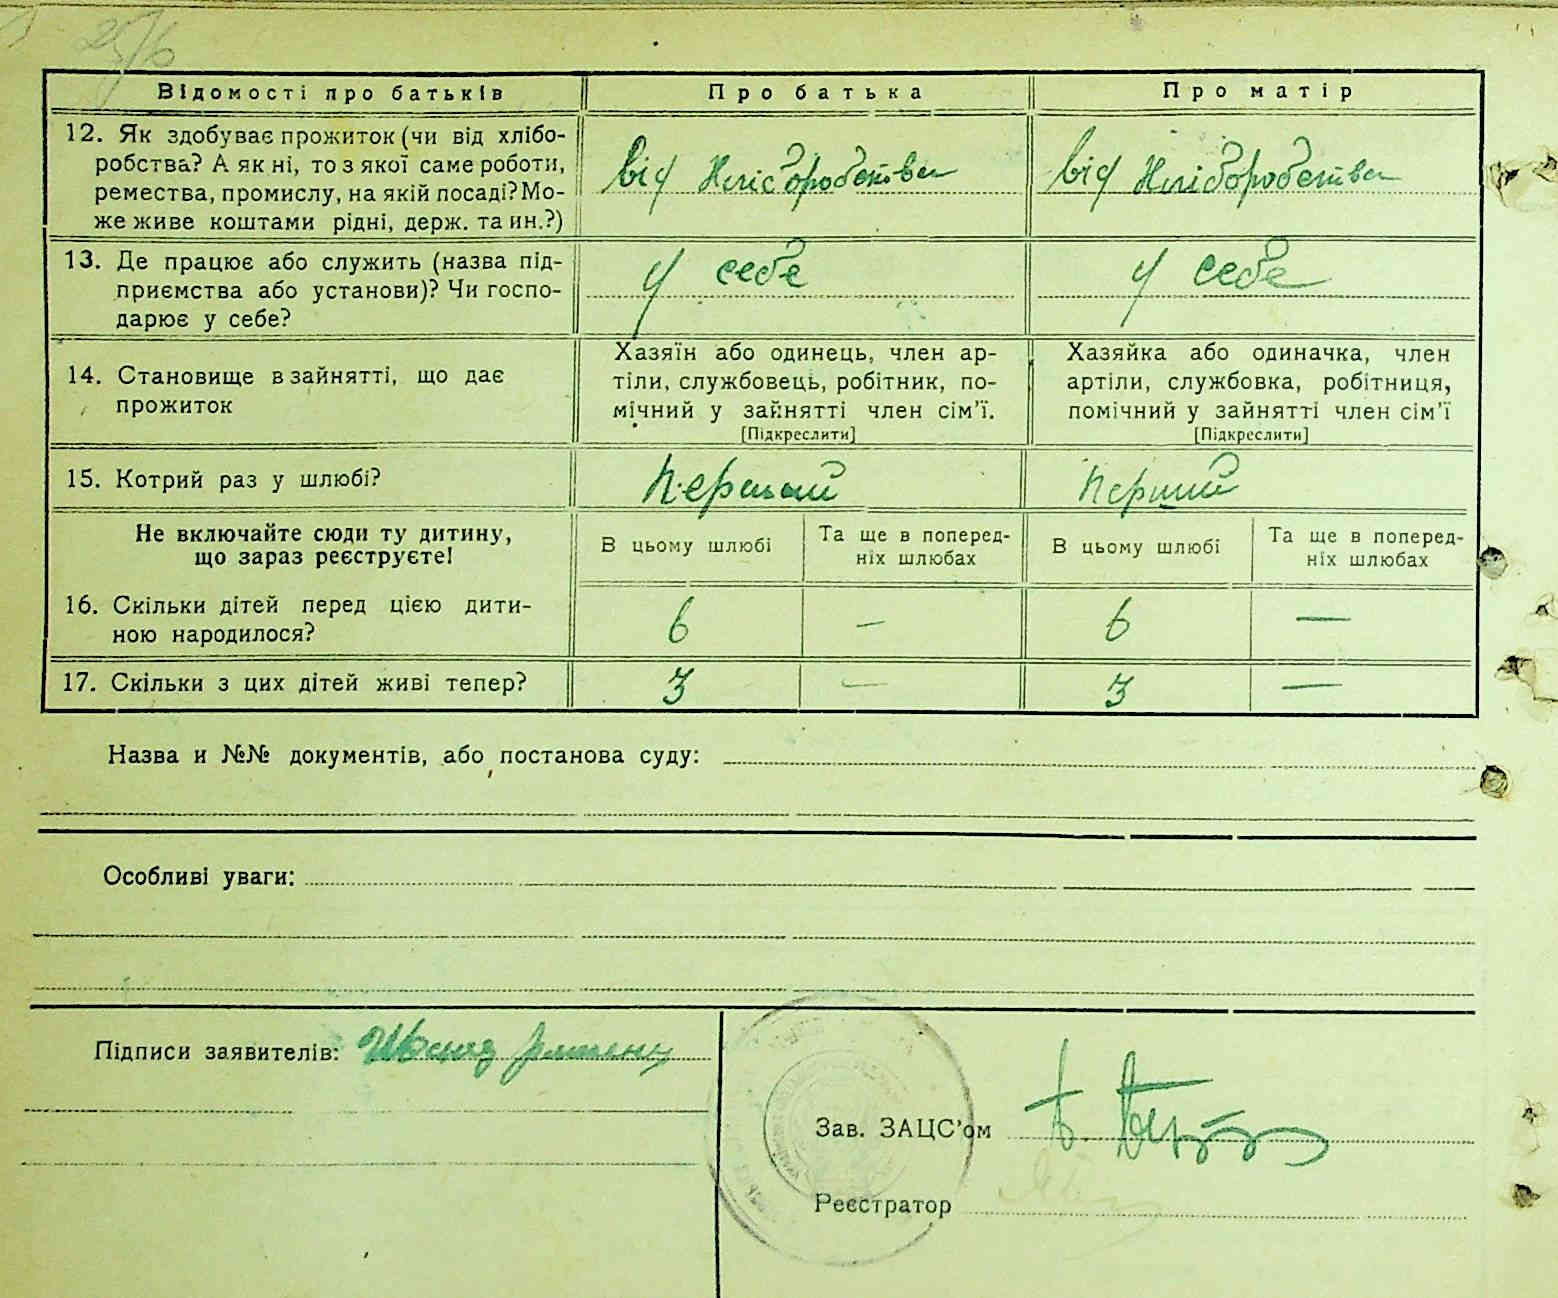 25/6
Відомості про батьків Про батька Про матір
12. Як здобуває прожиток (чи від хлібо-
робства? А як ні, то з якої саме роботи,
ремества, промислу, на якій посаді? Мо-
же живе коштами рідні, держ. та ин.?)
від Хліборобства від Хліборобства
13. Де працює або служить (назва під-
приємства або установи)? Чи госпо-
дарює у себе?
у себе у себе
14. Становище в зайнятті, що дає
прожиток
Хазяїн або одинець, член ар-
тіли, службовець, робітник, по-
мічний у зайнятті член сім'ї.
[Підкреслити]
Хазяйка або одиначка, член
артіли, службовка, робітниця,
помічний у зайнятті член сім'ї
[Підкреслити]
15. Котрий раз у шлюбі? Перший Перший
Не включайте сюди ту дитину,
що зараз реєструєте!
В цьому шлюбі
Та ще в поперед-
ніх шлюбах
В цьому шлюбі
Та ще в поперед-
ніх шлюбах
16. Скільки дітей перед цією дити-
ною народилося?
6 — 6 —
17. Скільки з цих дітей живі тепер? 3 — 3 —
Назва и №№ документів, або постанова суду:
Особливі уваги:
Підписи заявителів:
Зав. ЗАЦС'ом
Реєстратор